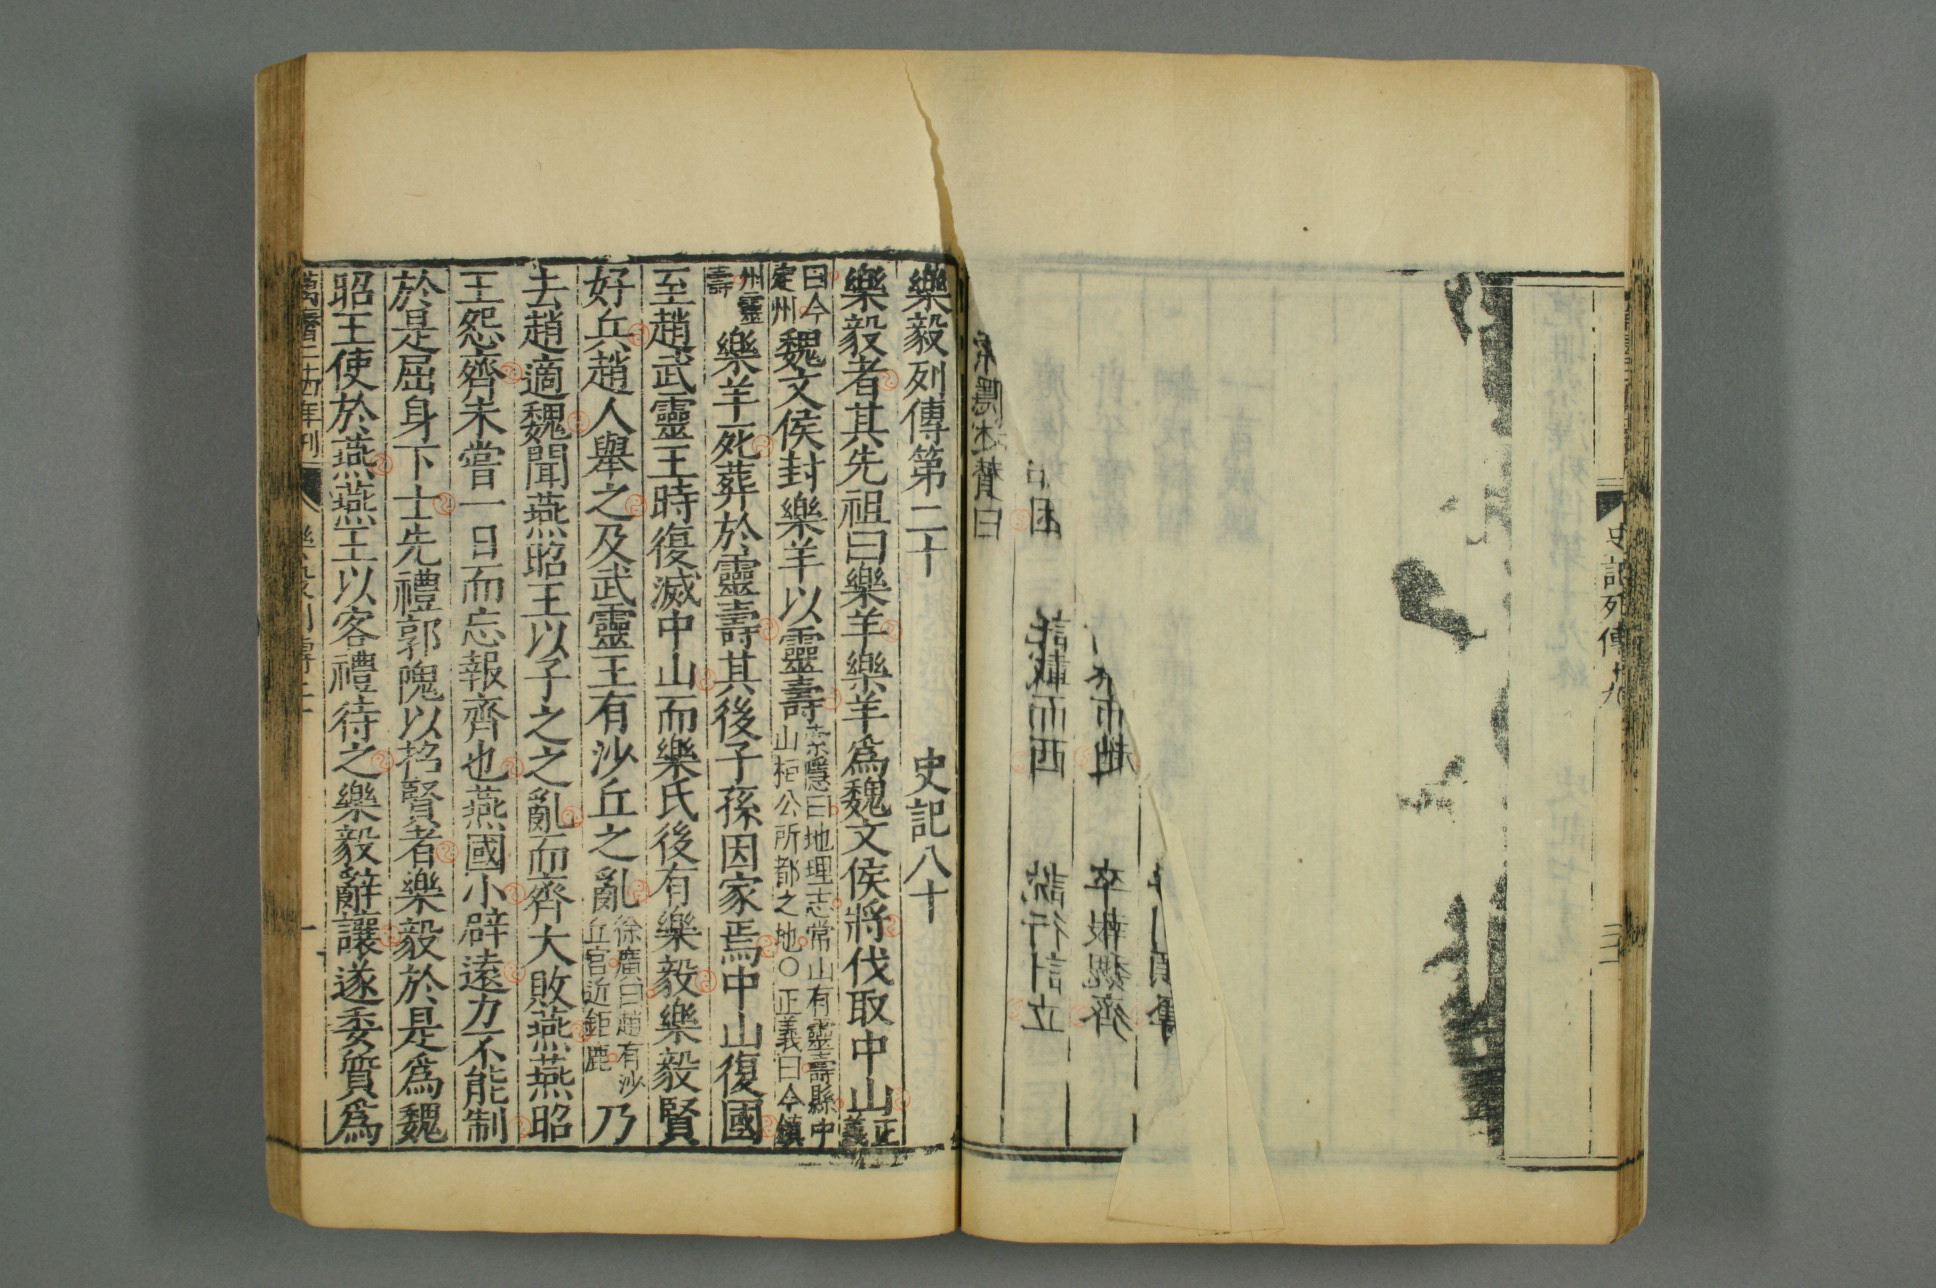 史記列傳十九
索隱述贊曰
樂毅列傳第二十　史記八十
樂毅者其先祖曰樂羊樂羊爲魏文侯將伐取中山正義
曰今定州魏文侯封樂羊以靈壽索隱曰地理志常山有靈壽縣中山桓公所都之地○正義曰今鎮
州靈壽樂羊死葬於靈壽其後子孫因家焉中山復國
至趙武靈王時復滅中山而樂氏後有樂毅樂毅賢
好兵趙人舉之及武靈王有沙丘之亂徐廣曰趙有沙丘宮近鉅鹿乃
去趙適魏聞燕昭王以子之之亂而齊大敗燕燕昭
王怨齊未嘗一日而忘報齊也燕國小辟遠力不能制
於是屈身下士先禮郭隗以招賢者樂毅於是爲魏
昭王使於燕燕王以客禮待之樂毅辭讓遂委質爲
萬曆二十四年刊　樂毅列傳二十　一